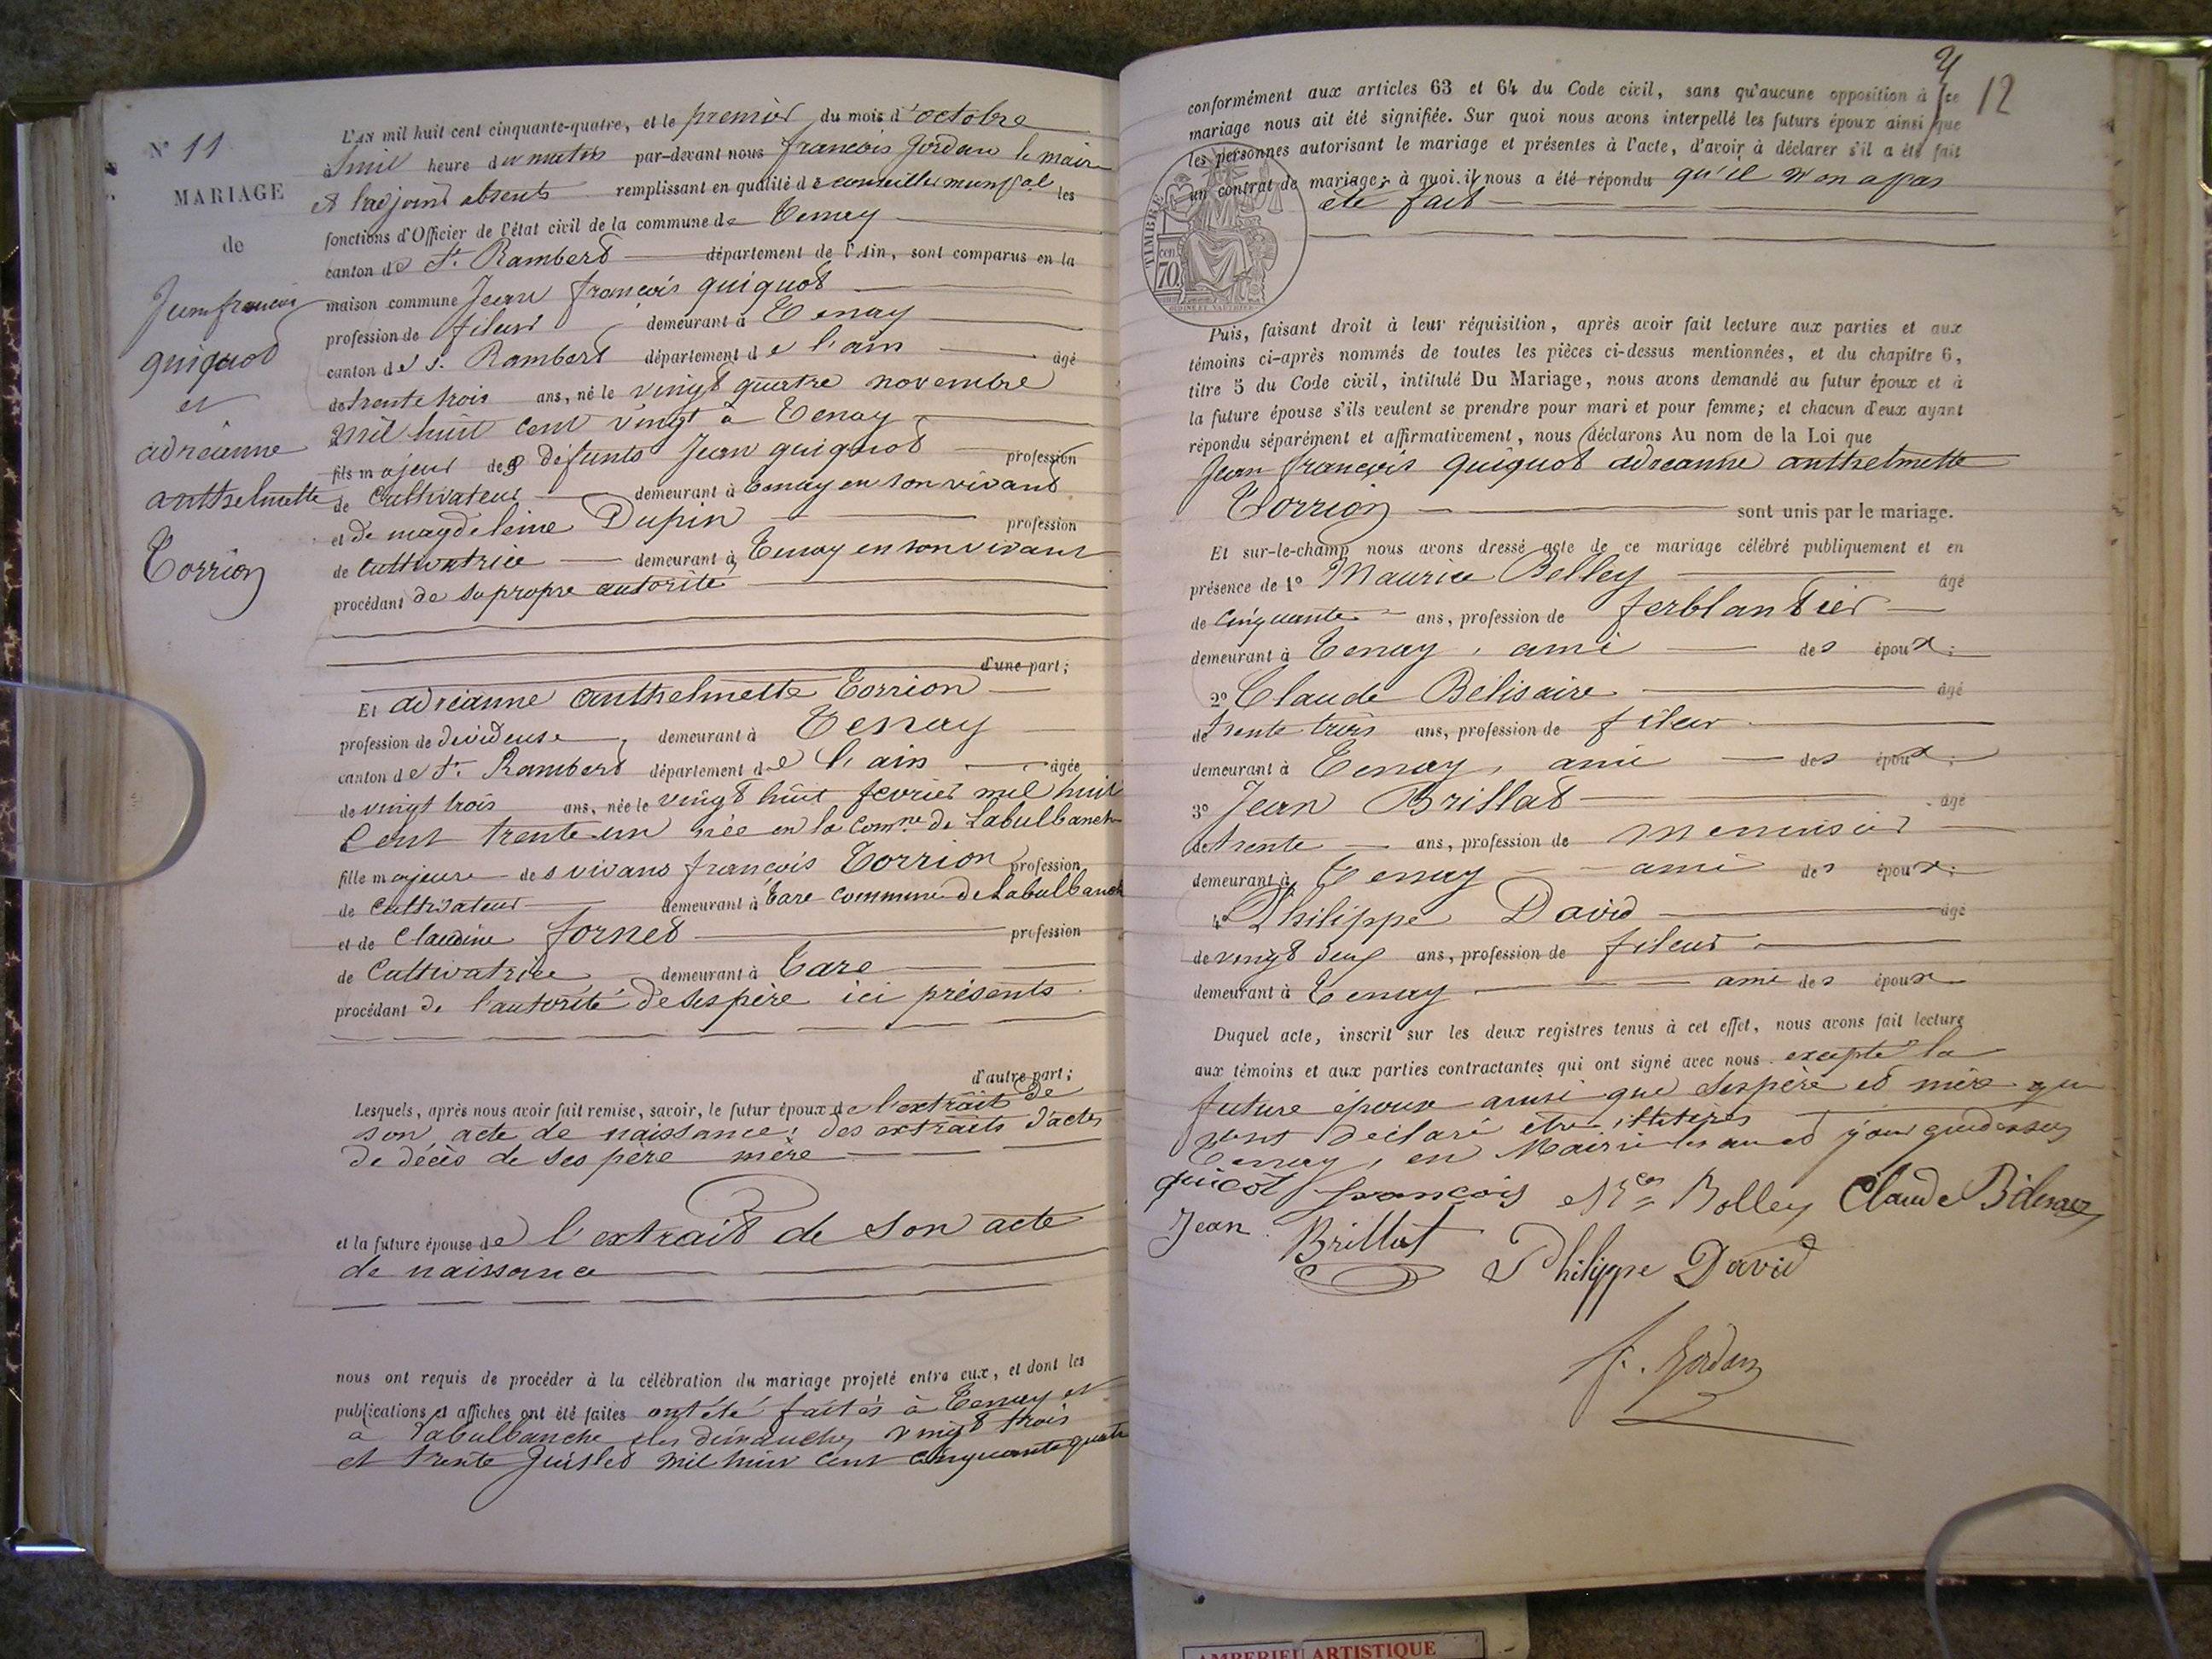 N° 11
MARIAGE
de
Jean francois
quiquod
et
adréanne
anthelmette
Torrion
L'AN mil huit cent cinquante-quatre, et le premier du mois d'octobre
à huit heure du matin par-devant nous francois Jordan le maire
et l'adjoint absents remplissant en qualité de conseiller municipal les
fonctions d'Officier de l'état civil de la commune de Tenay
canton de St. Rambert département de l'Ain, sont comparus en la
maison commune Jean françois quiquod
profession de fileur demeurant à Tenay
canton de S. Rambert département de l'ain âgé
de trente trois ans, né le vingt quatre novembre
mil huit cent vingt à Tenay
fils majeur des défunts Jean quiquod profession
de Cultivateur demeurant à Tenay en son vivant
et de magdeleine Dupin profession
de Cultivatrice demeurant à Tenay en son vivant
procédant de sa propre autorité
d'une part;
Et adréanne anthelmette Torrion
profession de dévideuse, demeurant à Tenay
canton de St. Rambert département de l'ain âgée
de vingt trois ans, née le vingt huit fevrier mil huit
Cent trente un née en la Comne de Labulbanch
fille majeure des vivans françois Torrion profession
de Cultivateur demeurant à Tare commune de Labulbanch
et de Claudine fornet profession
de Cultivatrice demeurant à Tare
procédant de l'autorité de ses père ici présents
d'autre part;
Lesquels, après nous avoir fait remise, savoir, le futur époux de l'extrait de
son acte de naissance; des extraits d'actes
de décès de ses père mère
et la future épouse de l'extrait de son acte
de naissance
nous ont requis de procéder à la célébration du mariage projeté entre eux, et dont les
publications et affiches ont été faites ont été faites à Tenay et
à Labulbanche les dimanches vingt trois
et trente Juillet mil huit cent cinquante quatre
12
conformément aux articles 63 et 64 du Code civil, sans qu'aucune opposition à ce
mariage nous ait été signifiée. Sur quoi nous avons interpellé les futurs époux ainsi que
les personnes autorisant le mariage et présentes à l'acte, d'avoir à déclarer s'il a été fait
un contrat de mariage; à quoi il nous a été répondu qu'il n'en a pas
été fait
TIMBRE
70
Puis, faisant droit à leur réquisition, après avoir fait lecture aux parties et aux
témoins ci-après nommés de toutes les pièces ci-dessus mentionnées, et du chapitre 6,
titre 5 du Code civil, intitulé Du Mariage, nous avons demandé au futur époux et à
la future épouse s'ils veulent se prendre pour mari et pour femme; et chacun d'eux ayant
répondu séparément et affirmativement, nous déclarons Au nom de la Loi que
Jean françois quiquod adreanne anthelmette
Torrion sont unis par le mariage.
Et sur-le-champ nous avons dressé acte de ce mariage célébré publiquement et en
présence de 1° Maurice Belley âgé
de Cinquante ans, profession de ferblantier
demeurant à Tenay, ami des époux;
2° Claude Belisaire âgé
de trente trois ans, profession de fileur
demeurant à Tenay, ami des époux;
3° Jean Brillat âgé
de trente ans, profession de Menuisier
demeurant à Tenay ami des époux;
4° Philippe David âgé
de vingt deux ans, profession de fileur
demeurant à Tenay ami des époux
Duquel acte, inscrit sur les deux registres tenus à cet effet, nous avons fait lecture
aux témoins et aux parties contractantes qui ont signé avec nous excepté la
future épouse ainsi que ses père et mère qui
ont déclaré être
Tenay, en Mairie les an et jour que dessus
quicot francois Belley Claude
Jean Brillat Philippe David
f. Jordan
AMBERIEU ARTISTIQUE